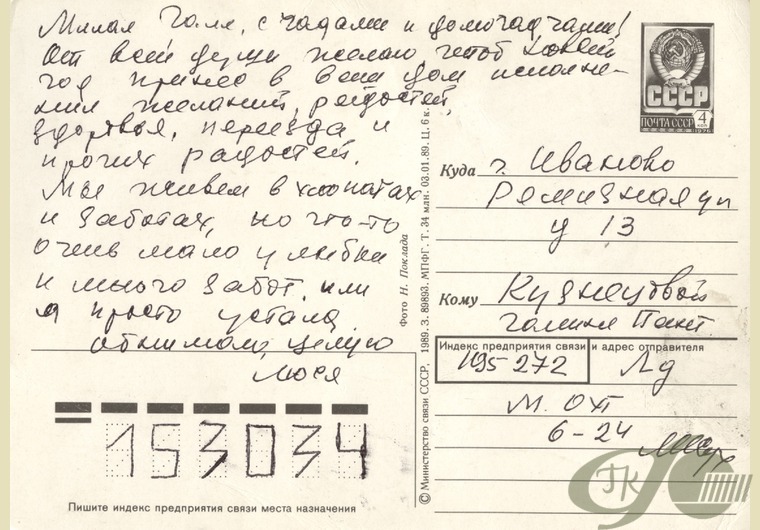 Милая Галя, с чадами и домочадцами!
От всей души желаю чтоб Новый
год принес в Ваш дом исполне-
ния желаний, радостей,
здоровья, переезда и
прочих радостей.
Мы живем в хлопотах
и заботах, но что-то
очень мало улыбки
и много забот, или
я просто устала
обнимаю, целую
Люся
СССР
ПОЧТА СССР
4
Куда г. Иваново
Ремизная ул
13
Кому Кузнецовой
Галине Пант.
Индекс предприятия связи и адрес отправителя
195-272
Лд
М. Охт
6-24
153034
Пишите индекс предприятия связи места назначения
© Министерство связи СССР, 1989. З. 89893. МПФГ. Т. 34 млн. 03.01.89. Ц. 6 к.
Фото Н. Поклада